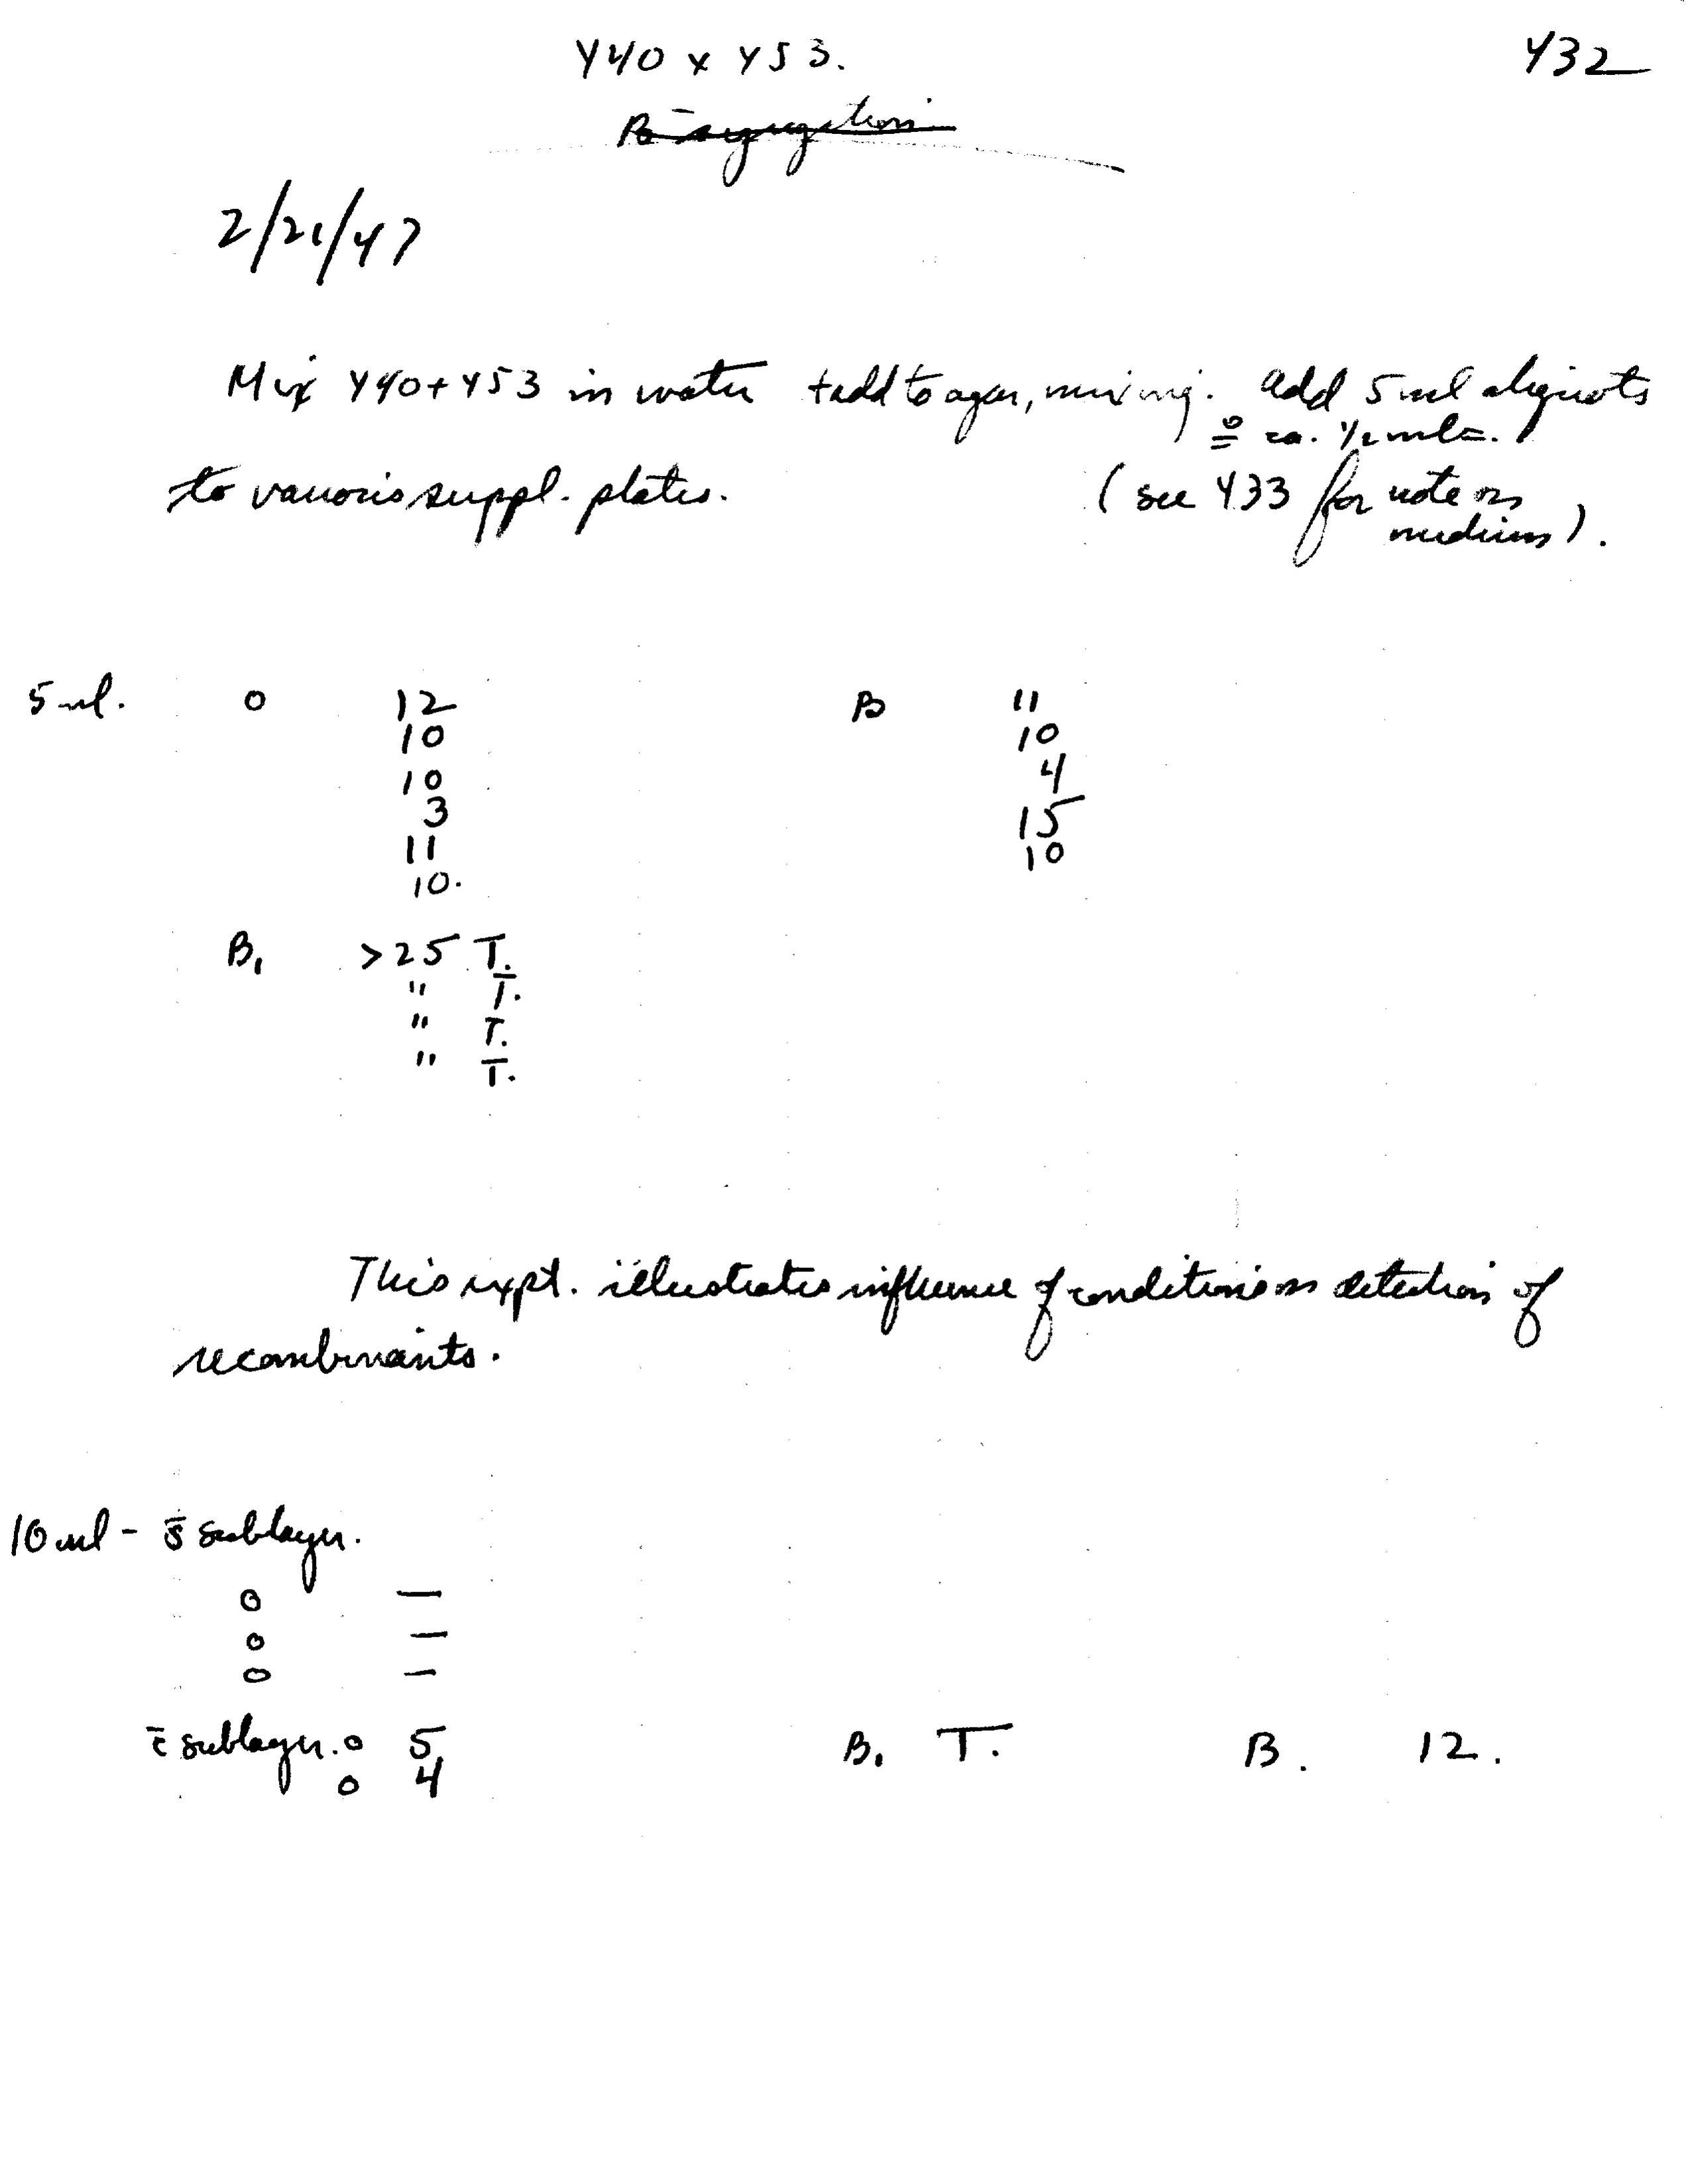 Y40 x Y53. 432
B segregation
2/21/47
Mix Y40 + Y53 in water + add to agar, mixing. Add 5 ml aliquots
≗ ca. 1/2 ml
to various suppl. plates. (see 433 for note on
medium).
5 ml. o 12 B 11
10 10
10 4
3 15
11 10
10.
B₁ >25 T.
" T.
" T.
" T.
This expt. illustrates influence of conditions on detection of
recombinants.
10 ml - s̄ sublayer.
o —
o —
o —
c̄ sublayer. o 5 B₁ T. B. 12.
o 4